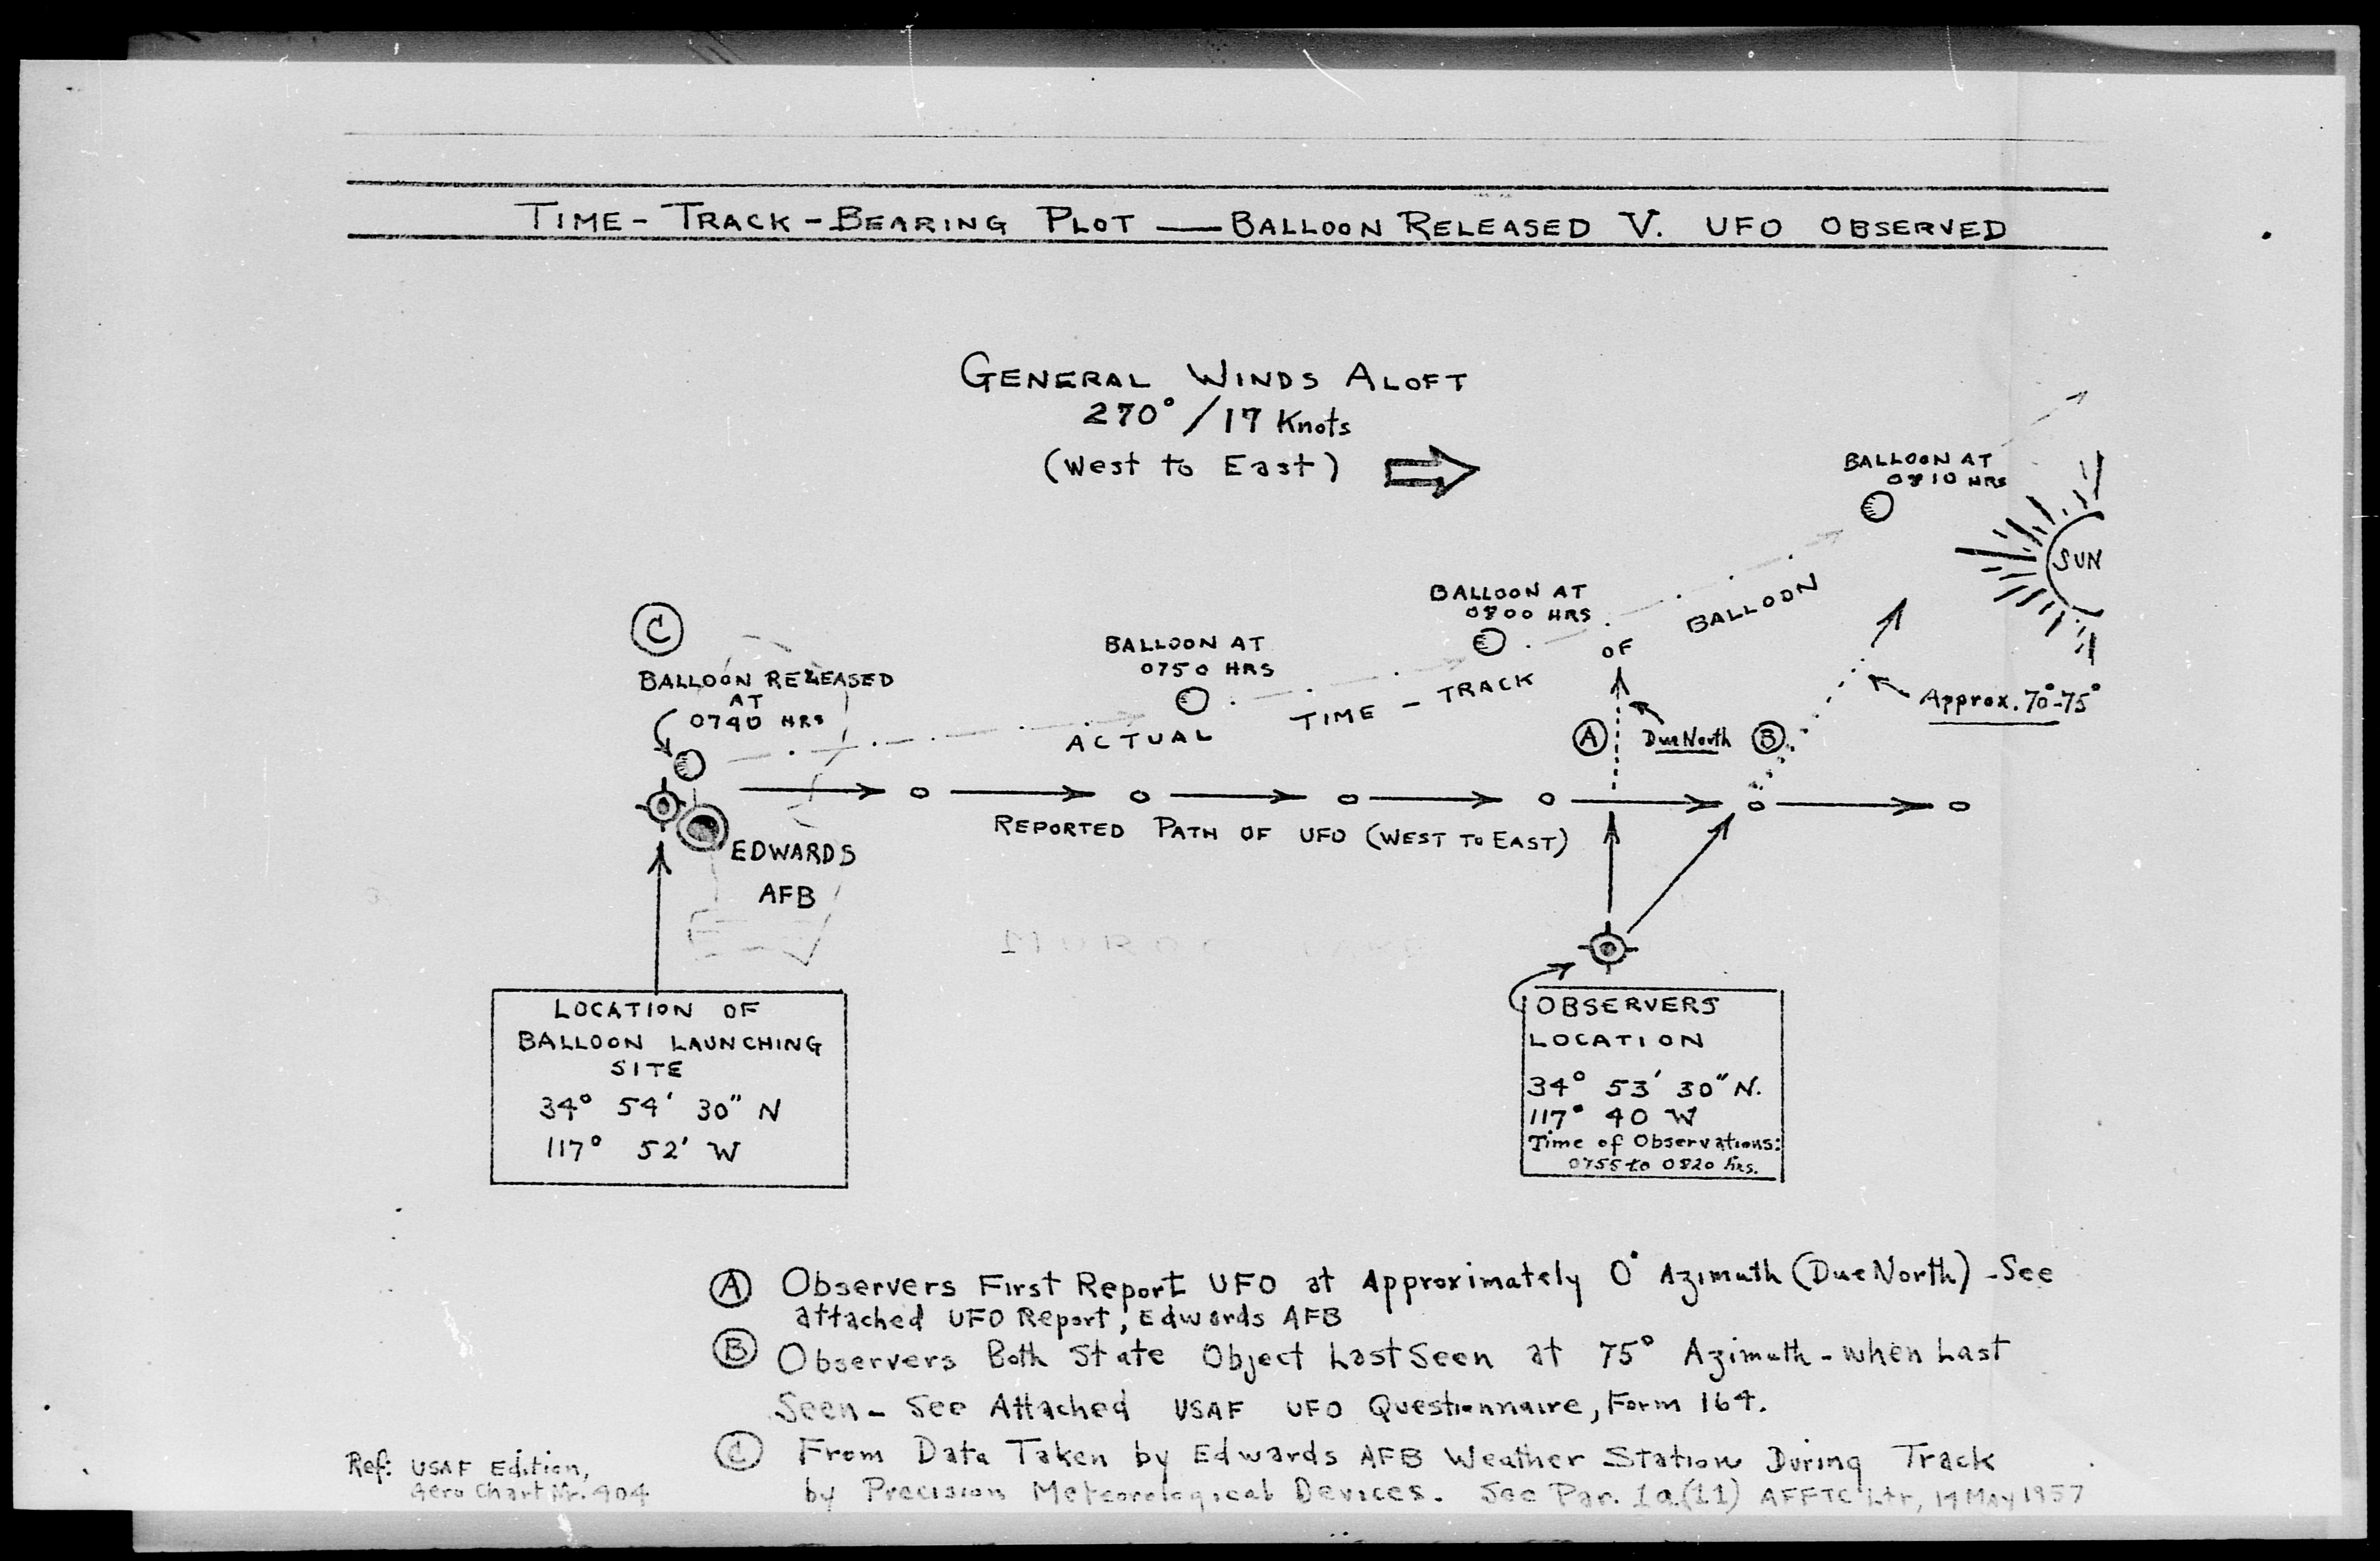 TIME - TRACK - BEARING PLOT — BALLOON RELEASED V. UFO OBSERVED
GENERAL WINDS ALOFT
270° / 17 Knots
(West to East)
BALLOON AT
0810 HRS
SUN
BALLOON AT
0800 HRS
BALLOON AT
0750 HRS
C
BALLOON RELEASED
AT
0740 HRS
ACTUAL TIME - TRACK OF BALLOON
A
Due North
B
Approx. 70°-75°
REPORTED PATH OF UFO (WEST TO EAST)
EDWARDS
AFB
MUROC LAKE
LOCATION OF
BALLOON LAUNCHING
SITE
34° 54' 30" N
117° 52' W
OBSERVERS
LOCATION
34° 53' 30" N.
117° 40 W
Time of Observations:
0755 to 0820 hrs.
A Observers First Report UFO at Approximately 0° Azimuth (Due North) - See
attached UFO Report, Edwards AFB
B Observers Both State Object Last Seen at 75° Azimuth - when Last
Seen - See Attached USAF UFO Questionnaire, Form 164.
C From Data Taken by Edwards AFB Weather Station During Track
by Precision Meteorological Devices. See Par. 1a(11) AFFTC Ltr, May 1957
Ref: USAF Edition,
Aero Chart Nr. 404